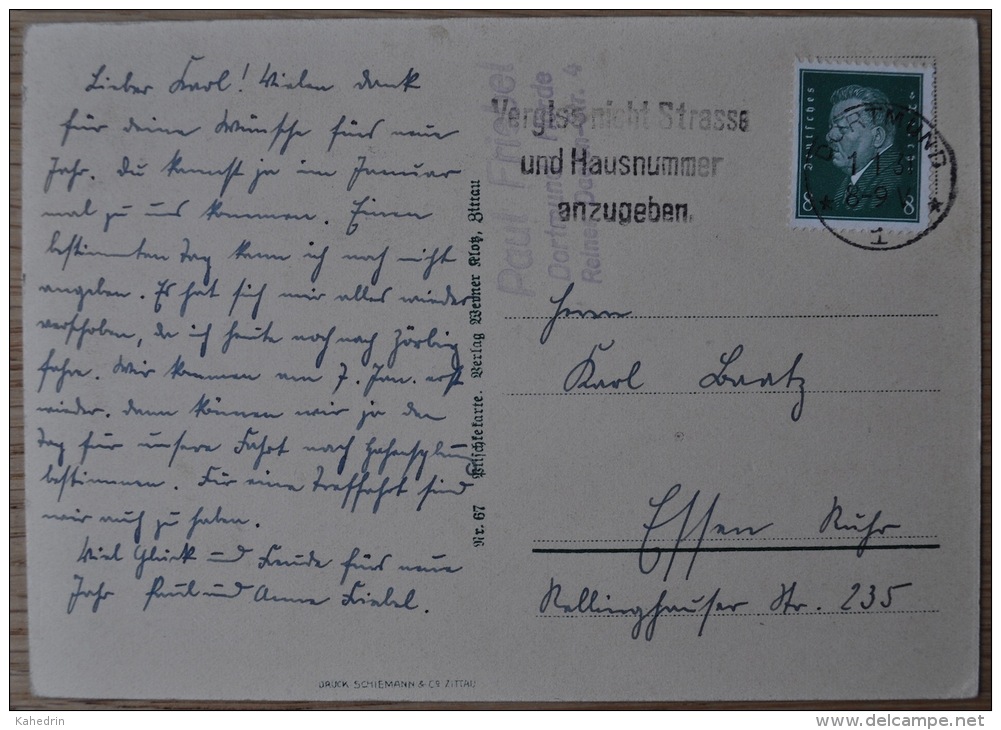 Lieber Karl! Vielen Dank
für deine Wünsche fürs neue
Jahr. Du kannst ja im Januar
mal zu uns kommen. Einen
bestimmten Tag kann ich noch nicht
angeben. Es hat sich mir alles wieder
verschoben, da ich heute noch nach Zörbig
fahre. Wir kommen am 7. Jan. erst
wieder. Dann können wir ja den
Tag für unsere Fahrt nach
bestimmen. Für eine Treffahrt sind
wir auch zu haben.
Viel Glück und Freude fürs neue
Jahr Paul und Anne Friebel.
DRUCK SCHIEMANN & Co ZITTAU
Nr. 67 Nitschkekarte. Verlag Werner Klotz, Zittau
Paul Friebel
Dortmund
Vergiss nicht Strasse
und Hausnummer
anzugeben.
Deutsches Reich
8 8
DORTMUND
8-9V
1
Herrn
Karl Baatz
Essen Ruhr
Rellinghauser Str. 235
Kahedrin
delcampe.net